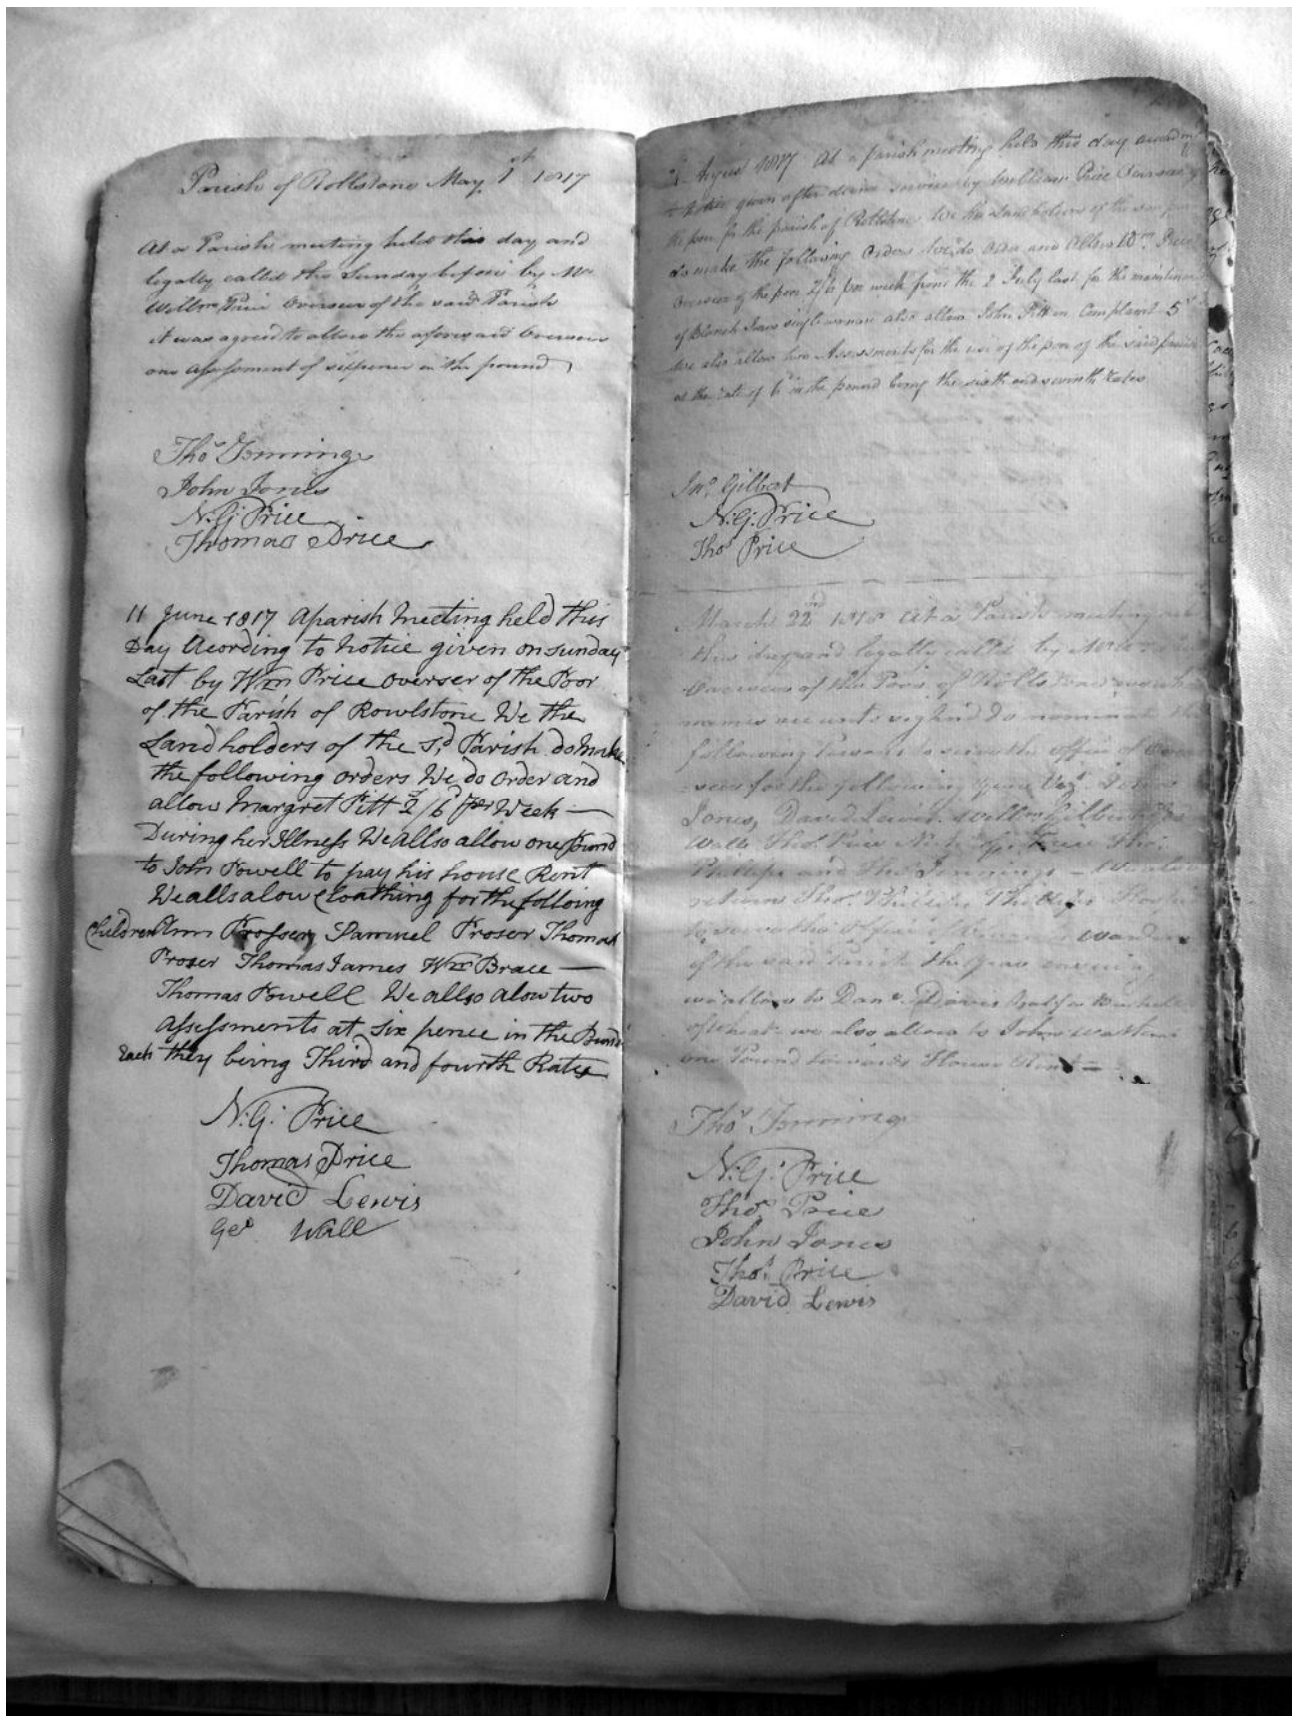 Parish of Rollstone May 1st 1817
At a Parish meeting held this day and
legally called the Sunday before by Mr
Willm Price Overseer of the said Parish
it was agreed to allow the aforesaid Overseer
one assessment of sixpence in the pound
Thos Jennings
John Jones
N.G. Price
Thomas Price
11 June 1817 Aparish Meeting held this
Day Acording to Notice given on sunday
Last by Wm Price overser of the Poor
of the Parish of Rowlstone We the
Landholders of the sd Parish do Make
the following orders We do order and
allow Margret Pitt 2s/6d per Week
During her Illness We allso allow one Pound
to John Powell to pay his house Rent
We allso alow Cloathing for the folloing
Children Ann Prosser Samuel Proser Thomas
Proser Thomas James Wm Brace
Thomas Powell We allso alow two
assessments at six pence in the Pound
Each they being Third and fourth Rates
N.G. Price
Thomas Price
David Lewis
Geo Wall
August 1817 At a parish meeting held this day
given after devine service by William Price Overseer of
the poor for the parish of Rollstone We the Landholders of the
do make the following Orders We do order and Allow Wm Price
Overseer of the poor 2/6 per week from the 2 July last for the
of Blanch singlewoman also allow John Pitt in Complaint 5s
We also allow two Assessments for the use of the poor of the said parish
at the rate of 6d in the pound being the sixth and seventh Rates
Jno Gilbert
N.G. Price
Thos Price
March 22nd 1818 At a Parish meeting
this day and legally called by
Overseer of the Poor of Rollstone
names are unto sign'd do nominate the
following Persons to serve the office of Over
seer for the following year Viz John
Jones, David Lewis Willm Gilbert
Wall Thos Price N. G. Price Thos
Phillips and Thos Jennings
return Thos
to serve the office of warden
of the said Parish the year ensuing
we allow to Danl Davis half a Bushel
of wheat we also allow to John Watkins
one Pound towards House Rent
Thos Jennings
N.G. Price
Thos Price
John Jones
Thos Price
David Lewis